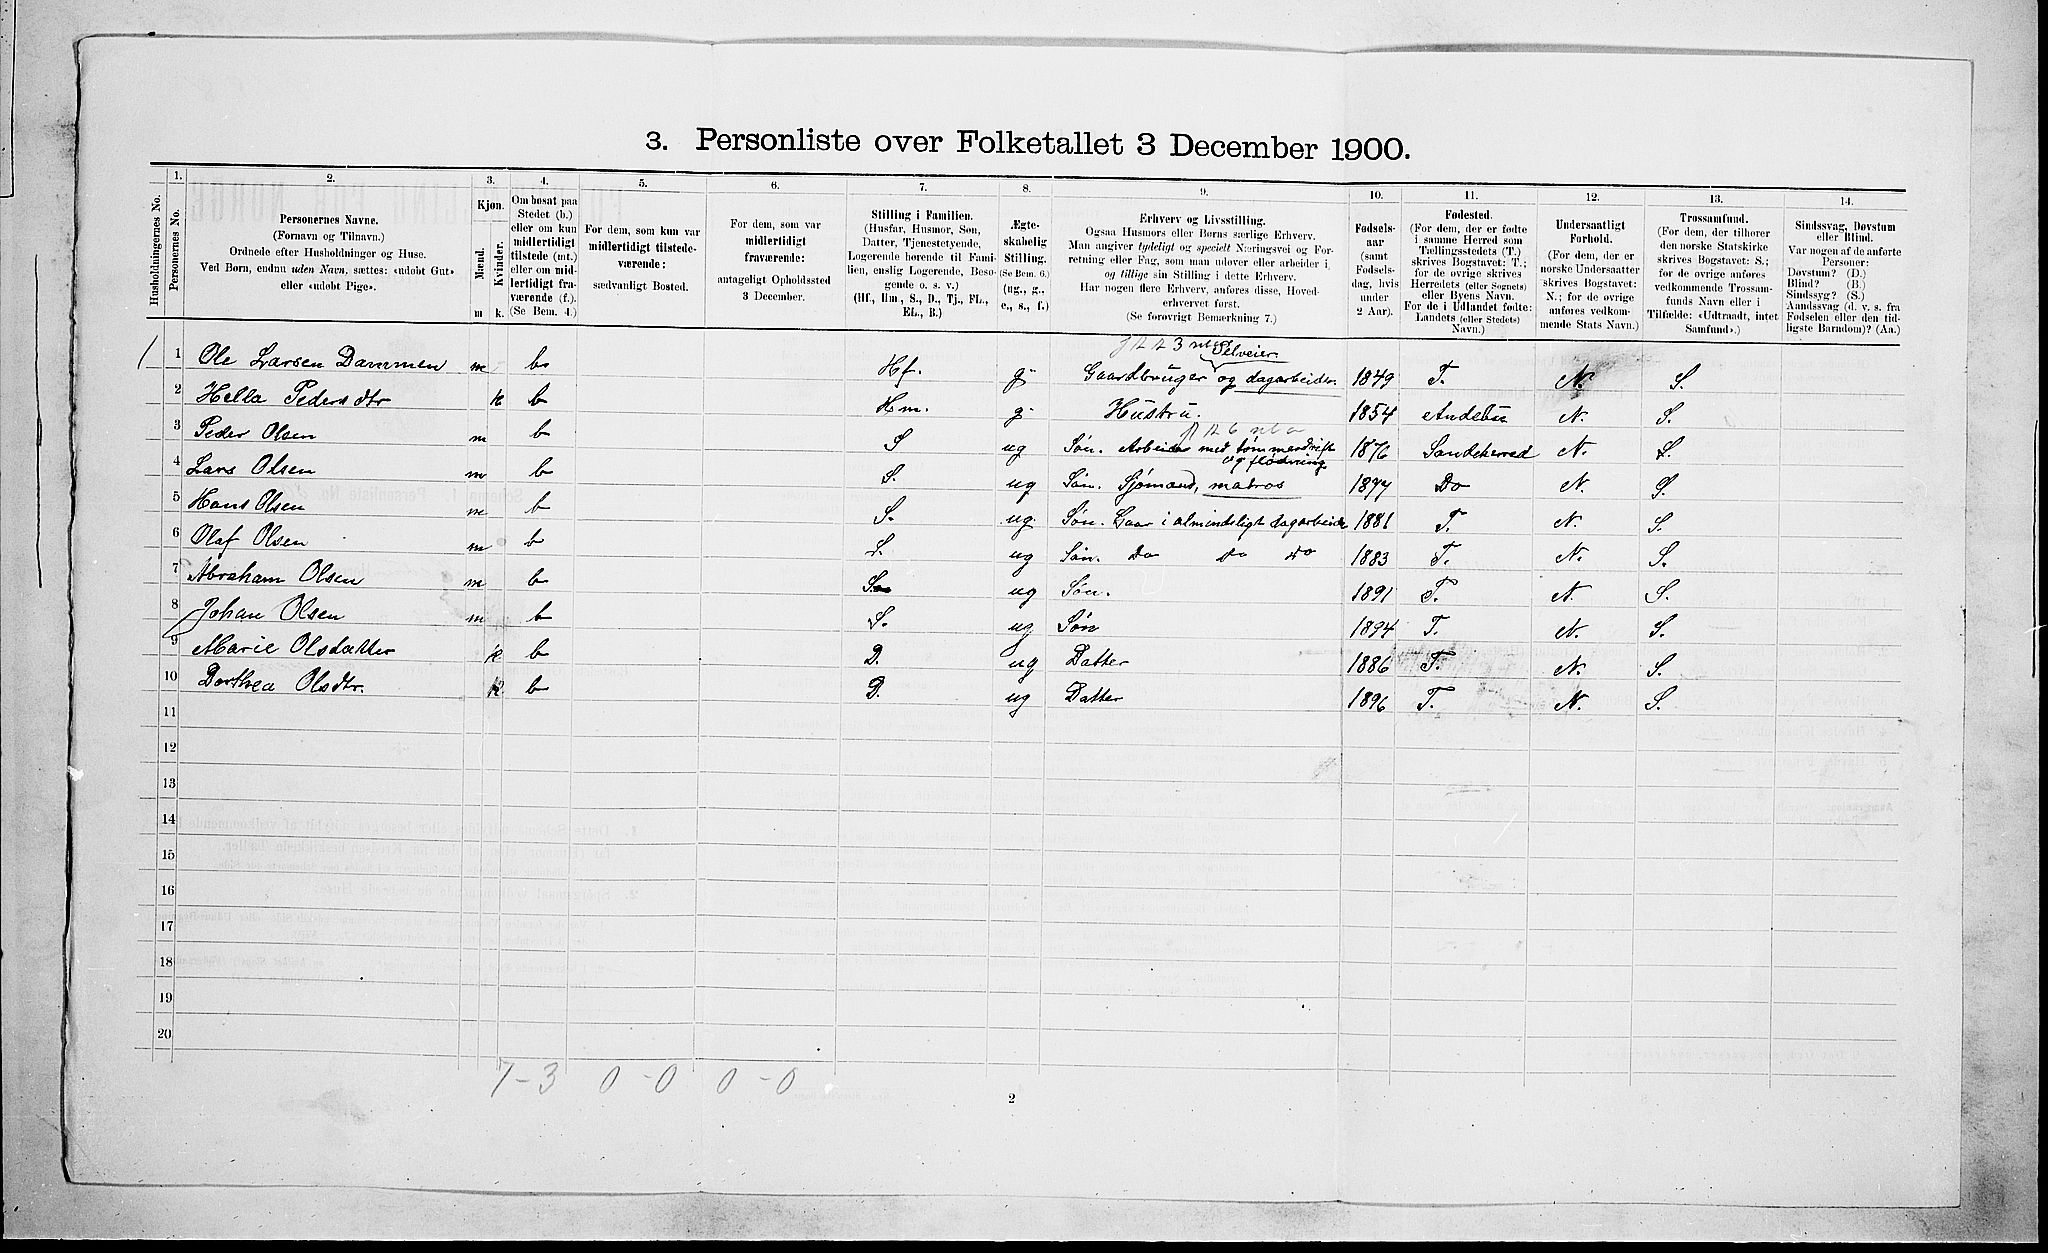 3. Personliste over Folketallet 3 December 1900.
1. 2. 3. 4. 5. 6. 7. 8. 9. 10. 11. 12. 13. 14.
Husholdningernes No.
Personernes No.
Personernes Navne.
(Fornavn og Tilnavn.)
Ordnede efter Husholdninger og Huse.
Ved Børn, endnu uden Navn, sættes: «udøbt Gut»
eller «udøbt Pige».
Kjøn.
Mænd. Kvinder.
m k.
Om bosat paa
Stedet (b.)
eller om kun
midlertidigt
tilstede (mt.)
eller om mid-
lertidigt fra-
værende (f.).
(Se Bem. 4.)
For dem, som kun var
midlertidigt tilstede-
værende:
sædvanligt Bosted.
For dem, som var
midlertidigt
fraværende:
antageligt Opholdssted
3 December.
Stilling i Familien.
(Husfar, Husmor, Søn,
Datter, Tjenestetyende,
Logerende hørende til Fami-
lien, enslig Logerende, Besø-
gende o. s. v.)
(Hf., Hm., S., D., Tj., FL.,
EL., B.)
Ægte-
skabelig
Stilling.
(Se Bem. 6.)
(ug., g.,
e., s., f.)
Erhverv og Livsstilling.
Ogsaa Husmors eller Børns særlige Erhverv.
Man angiver tydeligt og specielt Næringsvei og For-
retning eller Fag, som man udøver eller arbeider i,
og tillige sin Stilling i dette Erhverv.
Har nogen flere Erhverv, anføres disse, Hoved-
erhvervet først.
(Se forøvrigt Bemærkning 7.)
Fødsels-
aar
(samt
Fødsels-
dag, hvis
under
2 Aar).
Fødested.
(For dem, der er fødte
i samme Herred som
Tællingsstedets (T.)
skrives Bogstavet: T.;
for de øvrige skrives
Herredets (eller Sognets)
eller Byens Navn.
For de i Udlandet fødte:
Landets (eller Stedets)
Navn.)
Undersaatligt
Forhold.
(For dem, der er
norske Undersaatter
skrives Bogstavet:
N.; for de øvrige
anføres vedkom-
mende Stats Navn.)
Trossamfund.
(For dem, der tilhører
den norske Statskirke
skrives Bogstavet: S.;
for de øvrige anføres
vedkommende Trossam-
funds Navn eller i
Tilfælde: «Udtraadt, intet
Samfund».)
Sindssvag, Døvstum
eller Blind.
Var nogen af de anførte
Personer:
Døvstum? (D.)
Blind? (B.)
Sindssyg? (S.)
Aandssvag (d. v. s. fra
Fødselen eller den tid-
ligste Barndom)? (Aa.)
Selveier
1 Ole Larsen Dammen m b Hf. g. Gaardbruger og dagarbeider. 1849 T. N. S.
2 Hella Pedersdtr k b Hm. g. Hustru. 1854 Andebu N. S.
3 Peder Olsen m b S ug Søn. Arbeider med tømmerdrift 1876 Sandeherred N. S.
og flødning
4 Lars Olsen m b S. ug Søn. Sjømand, matros 1877 Do N. S.
5 Hans Olsen m b S. ug. Søn. Gaar i almindeligt dagarbeide 1881 T. N. S.
6 Olaf Olsen m b S. ug Søn. Do Do Do 1883 T. N. S.
7 Abraham Olsen m b S ug Søn. 1891 T. N. S.
8 Johan Olsen m b S. ug Søn 1894 T. N. S.
9 Marie Olsdatter k b D. ug Datter 1886 T. N. S.
10 Dorthea Olsdtr. k b D. ug Datter 1896 T. N. S.
11
12
13
14
15
16
17
18
19
20
7-3 0-0 0-0
2